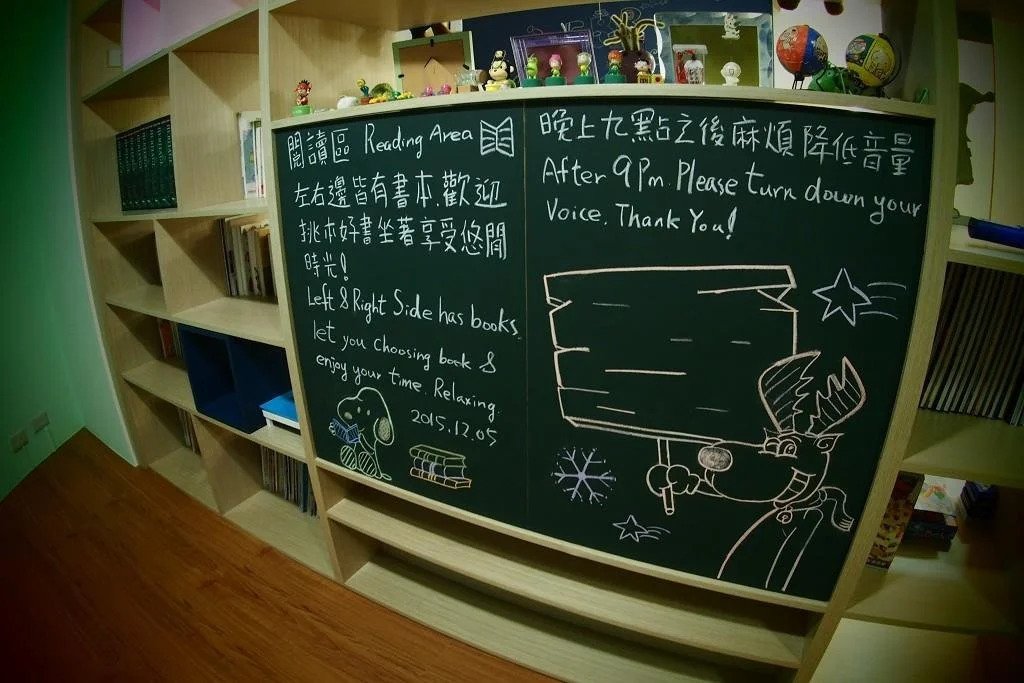 閱讀區 Reading Area
左右邊皆有書本.歡迎
挑本好書坐著享受悠閒
時光!
Left & Right Side has books
let you choosing book &
enjoy your time. Relaxing.
2015.12.05
晚上九點之後麻煩降低音量
After 9 Pm. Please turn down your
Voice. Thank You!